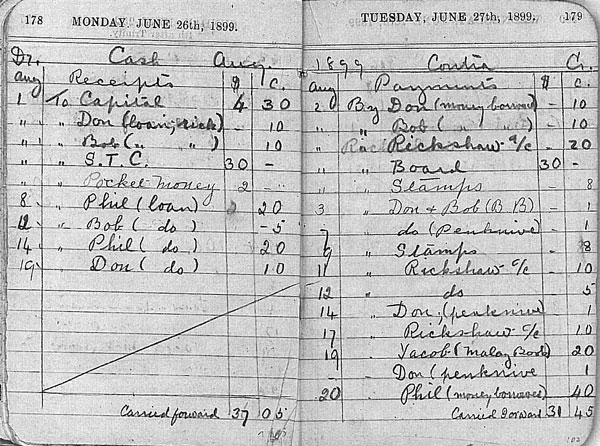 178 MONDAY, JUNE 26th, 1899.
Dr. Cash Aug.
Aug Receipts $ c.
1 To Capital 4 30
" " Don (loan, rick) - 10
" " Bob ( " " ) 10
" " S.T.C. 30 -
" " Pocket money 2 -
8 " Phil (loan) 20
12 " Bob ( do ) - 5
14 " Phil ( do ) 20
19 " Don ( do ) 10
Carried forward 37 05
TUESDAY, JUNE 27th, 1899. 179
1899 Contra Cr.
Aug Payments $ c.
2 By Don (money borrowed) - 10
" " Bob ( " ) - 10
" Rickshaw a/c - 20
" " Board 30 -
" " Stamps - 8
3 " Don & Bob (B B) - 1
7 " do (Penknive) - 1
9 " Stamps - 8
11 " Rickshaw a/c - 10
12 " do - 5
14 " Don, (penknive) 1
17 " Rickshaw a/c 10
19 " Yacob (Malay Book) 20
- Don (penknive 1
20 Phil (money borrowed) 40
Carried forward 31 45